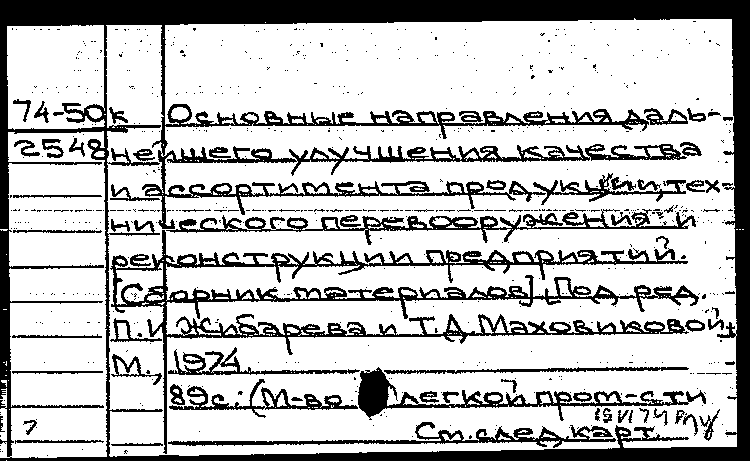 74-50к Основные направления даль-
2548 нейшего улучшения качества
и ассортимента продукции, тех-
нического перевооружения и
реконструкции предприятий.
[Сборник материалов]. [Под ред.
П.И Жибарева и Т.Д. Маховиковой]
М., 1974.
89с. (М-во легкой пром-сти
См. след. карт.